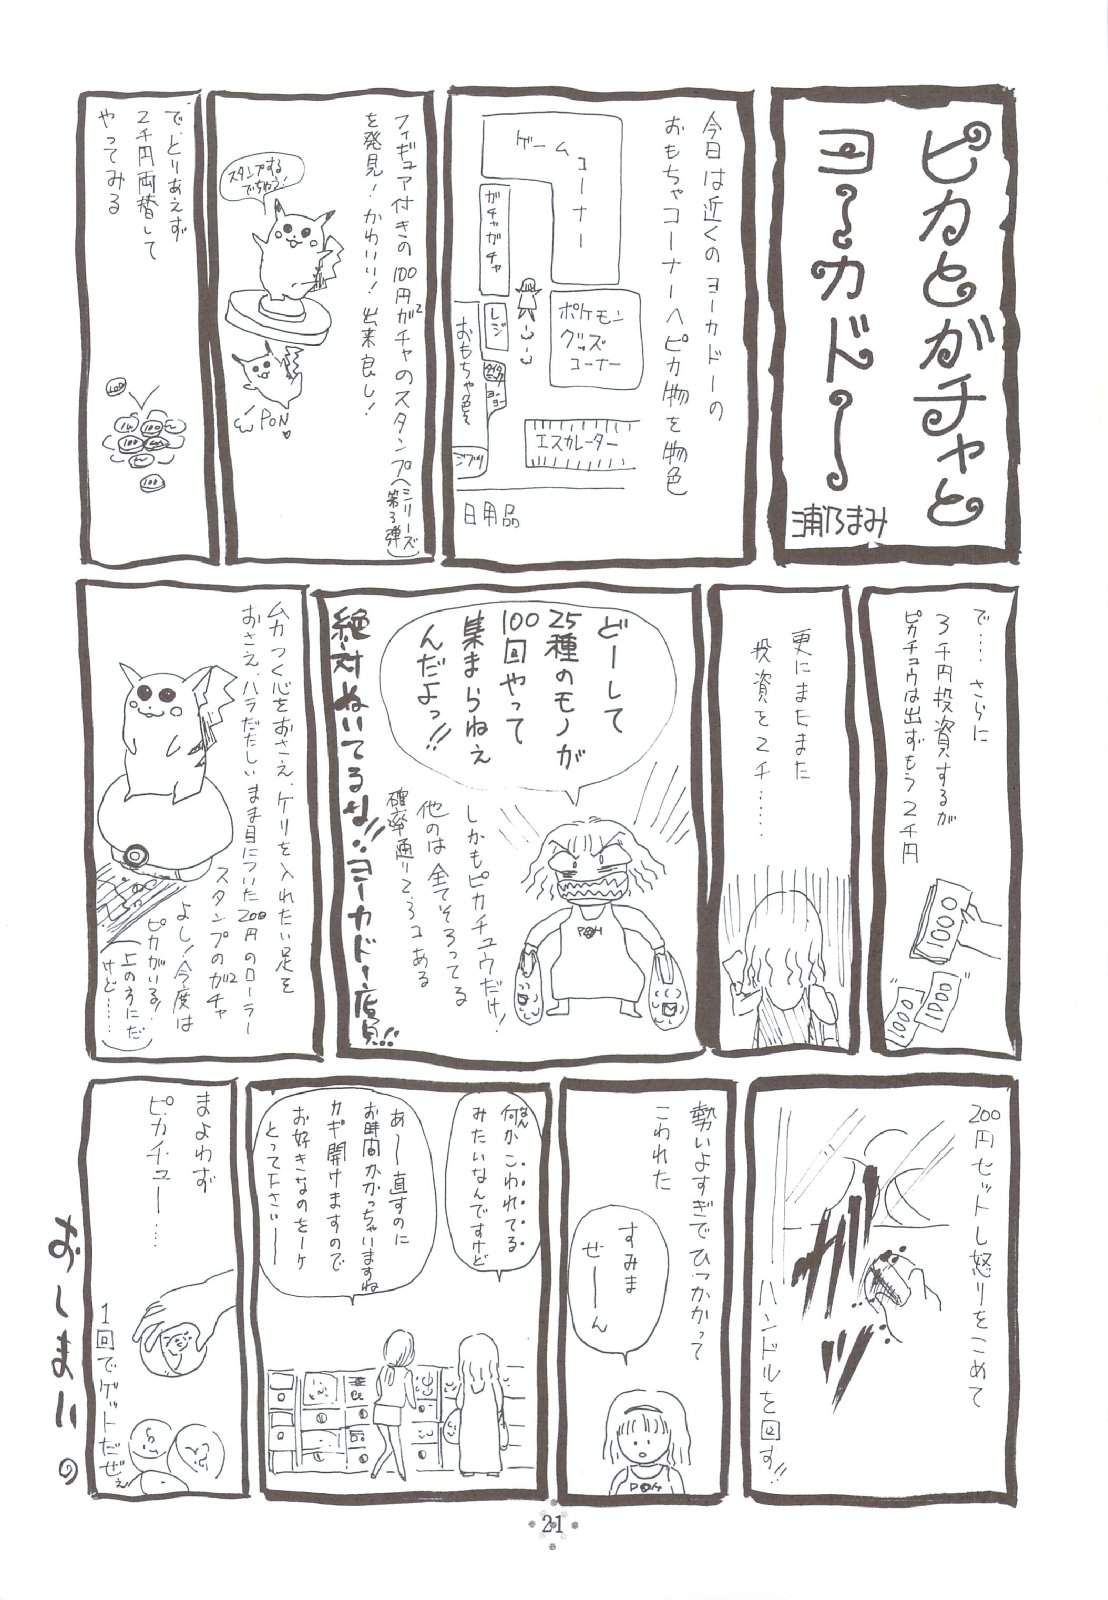 ピカとガチャと
ヨーカドー
浦乃まみ
今日は近くのヨーカドーの
おもちゃコーナーへピカ物を物色
ゲームコーナー
ガチャガチャ
レジ
おもちゃ色々
ポケモン
グッズ
コーナー
エスカレーター
ジブリ
日用品
フィギュア付きの100円ガチャ2のスタンプ(シリーズ第3弾)
を発見!かわいい!出来良し!
スタンプする
でちゅう!
PON
で、とりあえず
2千円両替して
やってみる
100
100
100
100
で……さらに
3千円投資するが
ピカチュウは出ずもう2千円
1000
1000
1000
更にまたまた
投資を2千……
どーして
25種のモノが
100回やって
集まらねぇ
んだよっ!!
しかもピカチュウだけ!
他のは全てそろってる
確率通り2、3コある
絶対ぬいてるな!!ヨーカドー店員!!
ムカつく心をおさえ、ケリを入れたい足を
おさえ、ハラだたしいまま目についた200円のローラー
スタンプのガチャ2
よし!今度は
ピカがいる!
(上のほうにだ
けど……)
200円セットし怒りをこめて
ハンドルを回す!!
ガリッ
勢いよすぎでひっかかって
こわれた
すみま
せーーん
何かこわれてる
なん
みたいなんですけど
あーー直すのに
お時間かかっちゃいますね
カギ開けますので
お好きなのをーヶ
とって下さいーー
まよわず
ピカチュー……
1回でゲットだぜぇ
おしまい
21